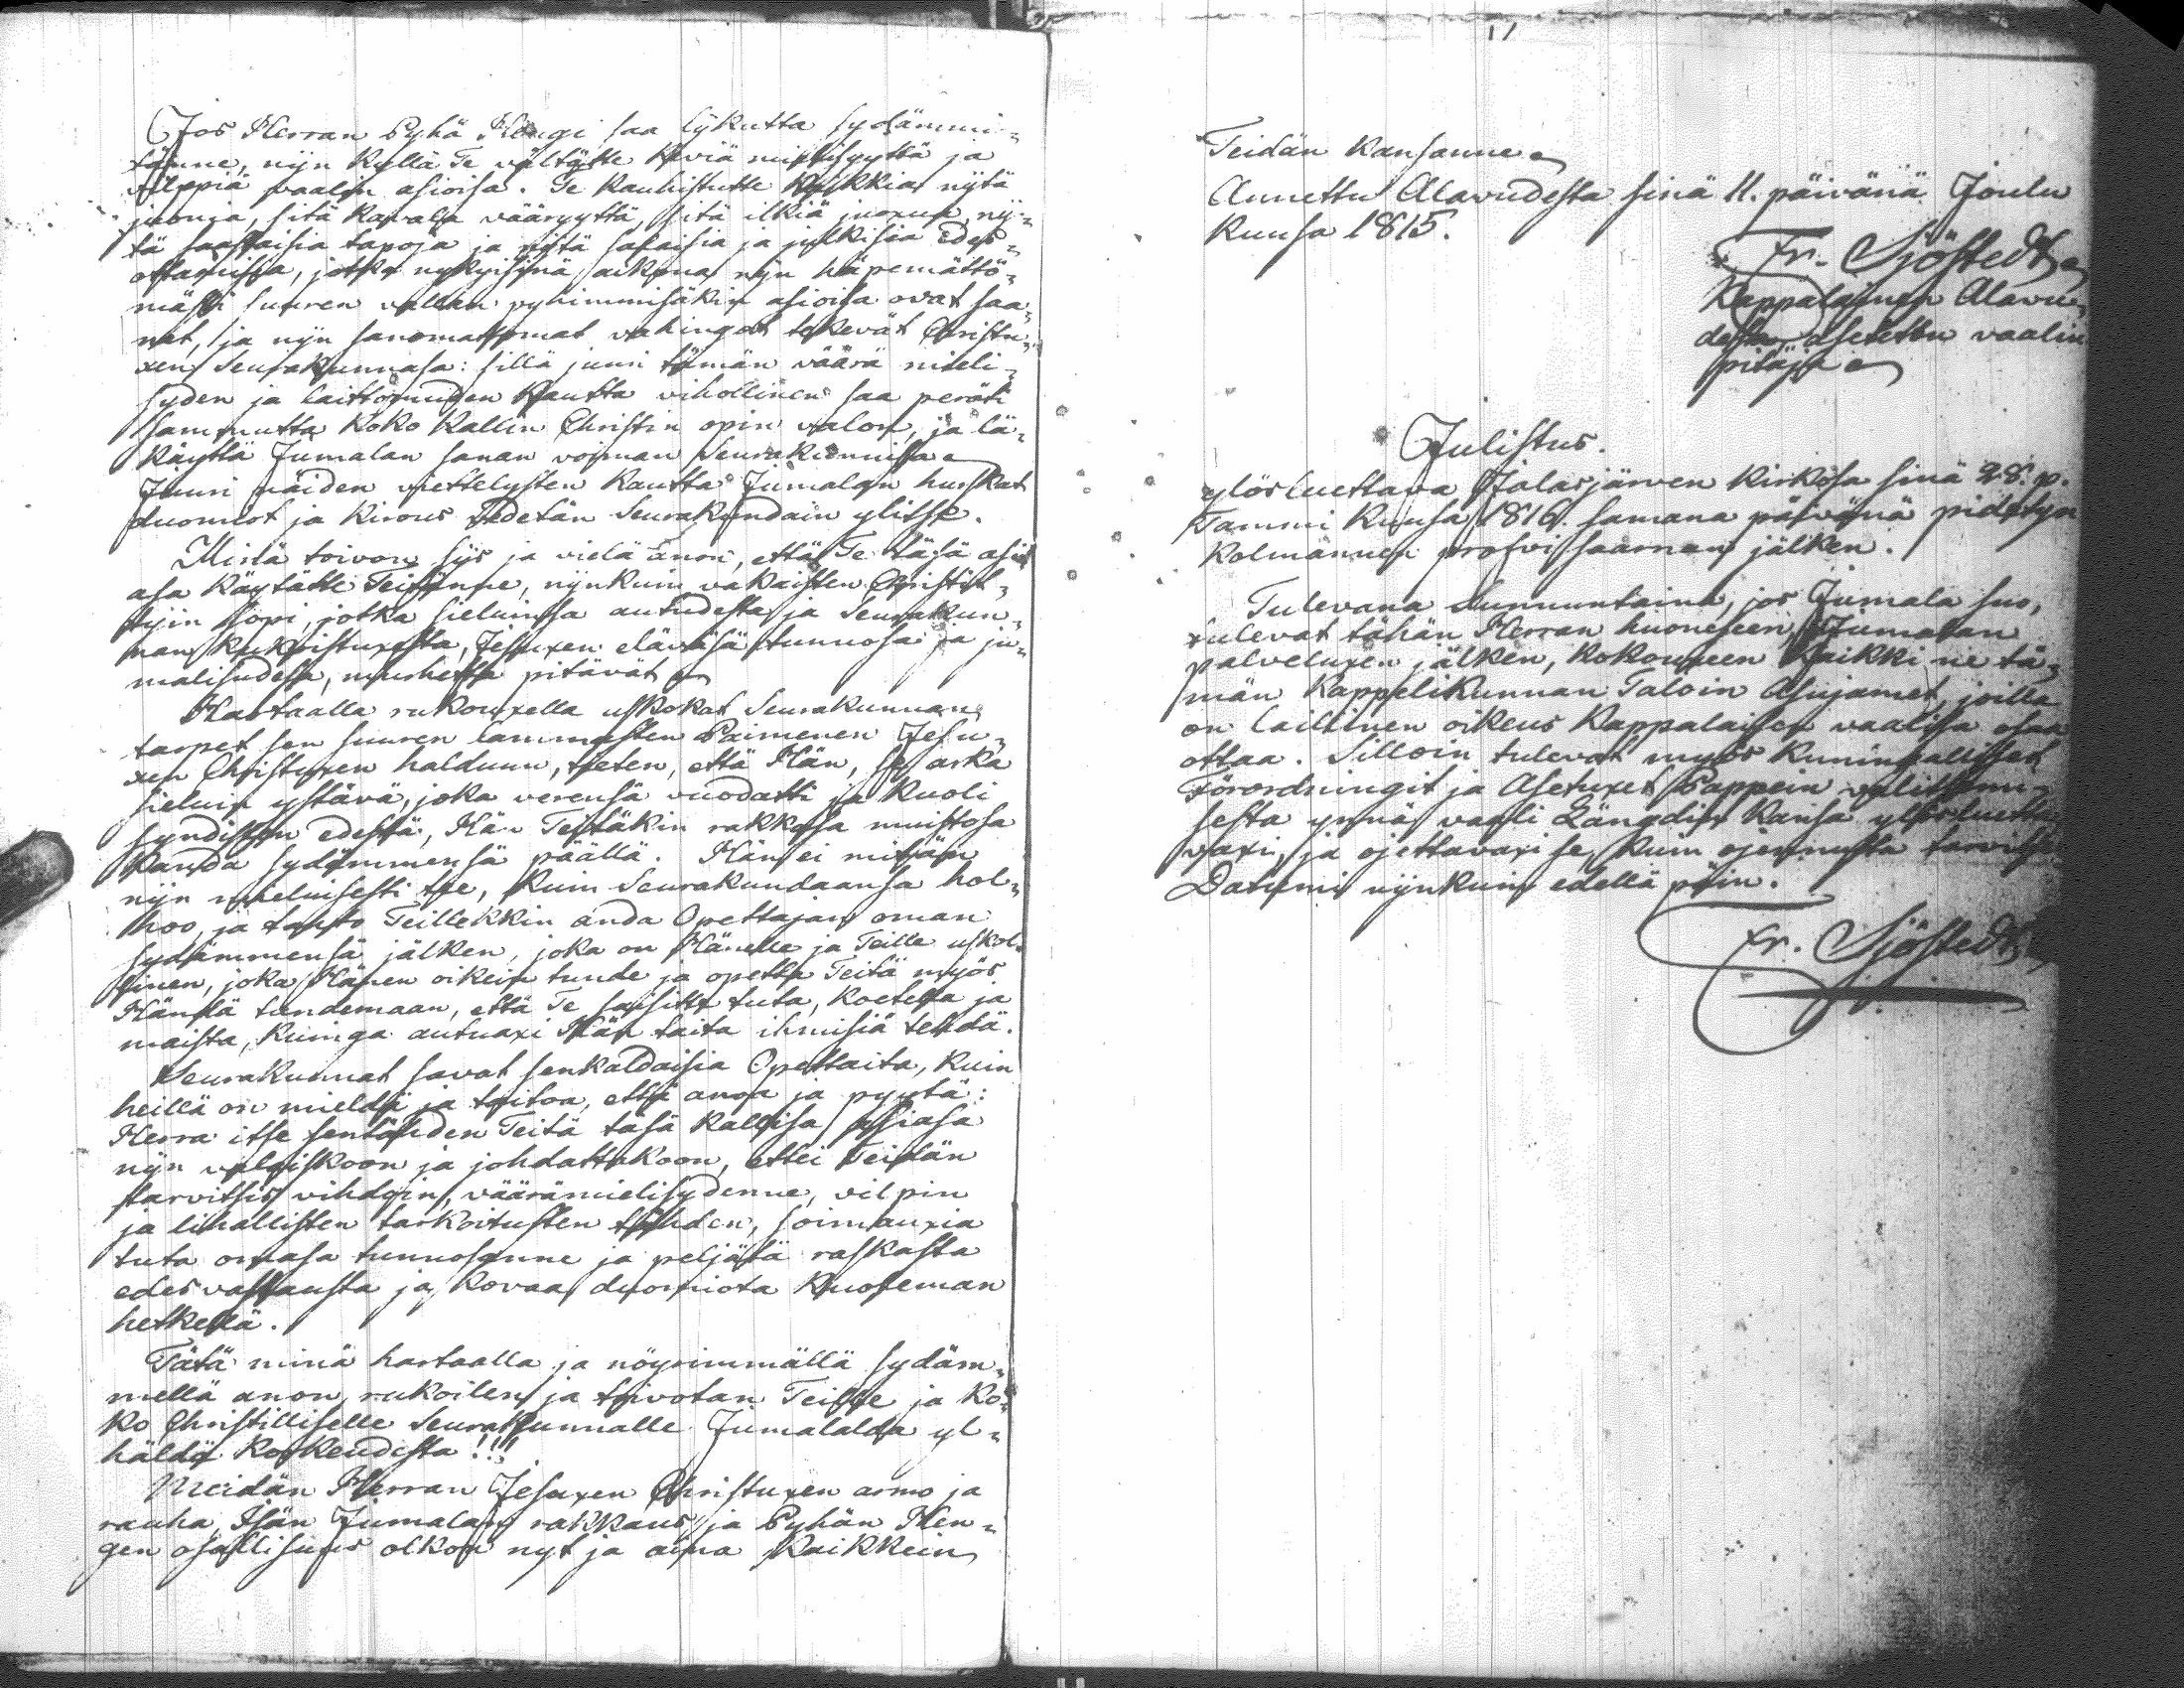 Jos Herran Pyhä Hengi saa lijkutta sydämmi=
tänne, nijn kyllä Te vältätte keviä mielisyyttä ja
vilppiä vaalin asioisa. Te kauhistutte kaikkia nijtä
juonia, sitä kavala vääryyttä, sitä ilkiä juoxua, nij=
tä saastaisia tapoja ja nijtä salaisia ja julkisia edes=
ottamisia, jotka nykyisinä aikoina nijn häpemättö=
mästi suuren vallan pyhimmisäkin asioisa ovat saa=
net, ja nijn sanomattomat vahingot tekevät Christu=
xen Seurakunnasa: sillä juuri tämän väärä mieli=
syden ja laittomuden kautta vihollinen saa peräti
sammutta koko kallin Christin opin valon, ja lä=
käyttä Jumalan sanan voiman Seurakunnisa
Juuri näiden viettelysten kautta Jumalan hurskat
duomiot ja kirous vedetän Seurakundain ylitse.
Minä toivon sijs ja vielä anon, että Te täsä asi=
asa käytätte Teitänne, nijnkuin vakaisten Christit=
tyin sopi, jotka sieluinsa autudesta ja Seurakun=
nan rukoistuxesta, Jesuxen elävasä tunnosa ja ju=
malisudesta, murhetta pitävät
Hartaalla rukouxella uskokat Seurakunnan
tarpet sen suuren lammasten Paimenen Jesu=
xen Christuxen halduun, tieten, että Hän, se arka
sieluin ystävä, joka verensä vuodatti ja kuoli
syndisten edestä, Hän Teitäkin rakkasa muistosa
kanda sydämmensä päällä. Hän ei mitän
nijn mieluisesti tee, kuin Seurakundaansa hol=
hoo, ja tahto Teillekkin anda Opettajan oman
sydämmensä jälken, joka on Hänelle ja Teille uskol=
linen, joka Hänen oikein tunde ja opetta Teitä myös
Händä tundemaan, että Te saisitte tuta, koetella ja
maista, kuinga autuaxi Hän taita ihmisiä tehdä.
Seurakunnat savat senkaldaisia Opettaita, kuin
heillä on mieldä ja taitoa, että anoa ja pyytä:
Herra itse sentähden Teitä täsä kallisa assiasa
nijn valaiskoon ja johdattakoon, ettei Teidän
tarvitsis vihdoin, väärämielisydenne, vilpin
ja lihallisten tarkoitusten tähden, soimauxia
tuta omasa tunnosanne ja peljätä raskasta
edesvastausta ja kovaa duomiota kuoleman
hetkellä.
Tätä minä hartaalla ja nöyrimmällä sydäm=
mellä anon, rukoilen ja toivotan Teille ja ko=
ko Christilliselle Seurakunnalle Jumalalda yl=
häldä korkeudesta!!!
Meidän Herran Jesuxen Christuxen armo ja
rauha, Isän Jumalan rakkaus, ja Pyhän Hen=
gen osallisuus olkon nyt ja aina kaikkein
Teidän kansanne
Annettu Alavudesta sinä 11. päivänä Joulu
kuusa 1815.
Fr. Sjöstedt
Kappalainen Alavu=
desta, asetettu vaalin
pitäjä
Julistus.
ylösluettava Jalasjärven kirkosa sinä 28. p.
Tammi kuusa 1816. samana päivänä pidetyn
kolmannen profvisaarnan jälken.
Tulevana Sunnuntaina, jos Jumala suo,
tulevat tähän Herran huoneseen Jumalan
palveluxen jälken, kokouxeen kaikki ne tä=
män Kappelikunnan Taloin Asujamet, joilla
on laillinen oikeus Kappalaisen vaalisa osaa
ottaa. Silloin tulevat myös Kuningalliset
Förordningit ja Asetuxet Pappein valitsemi=
sesta ynnä vaali Längdin kansa ylösluetta
vaxi, ja ojettavaxi se, kuin ojennusta tarvitse
Datumi nijnkuin edellä päin.
Fr. Sjöstedt